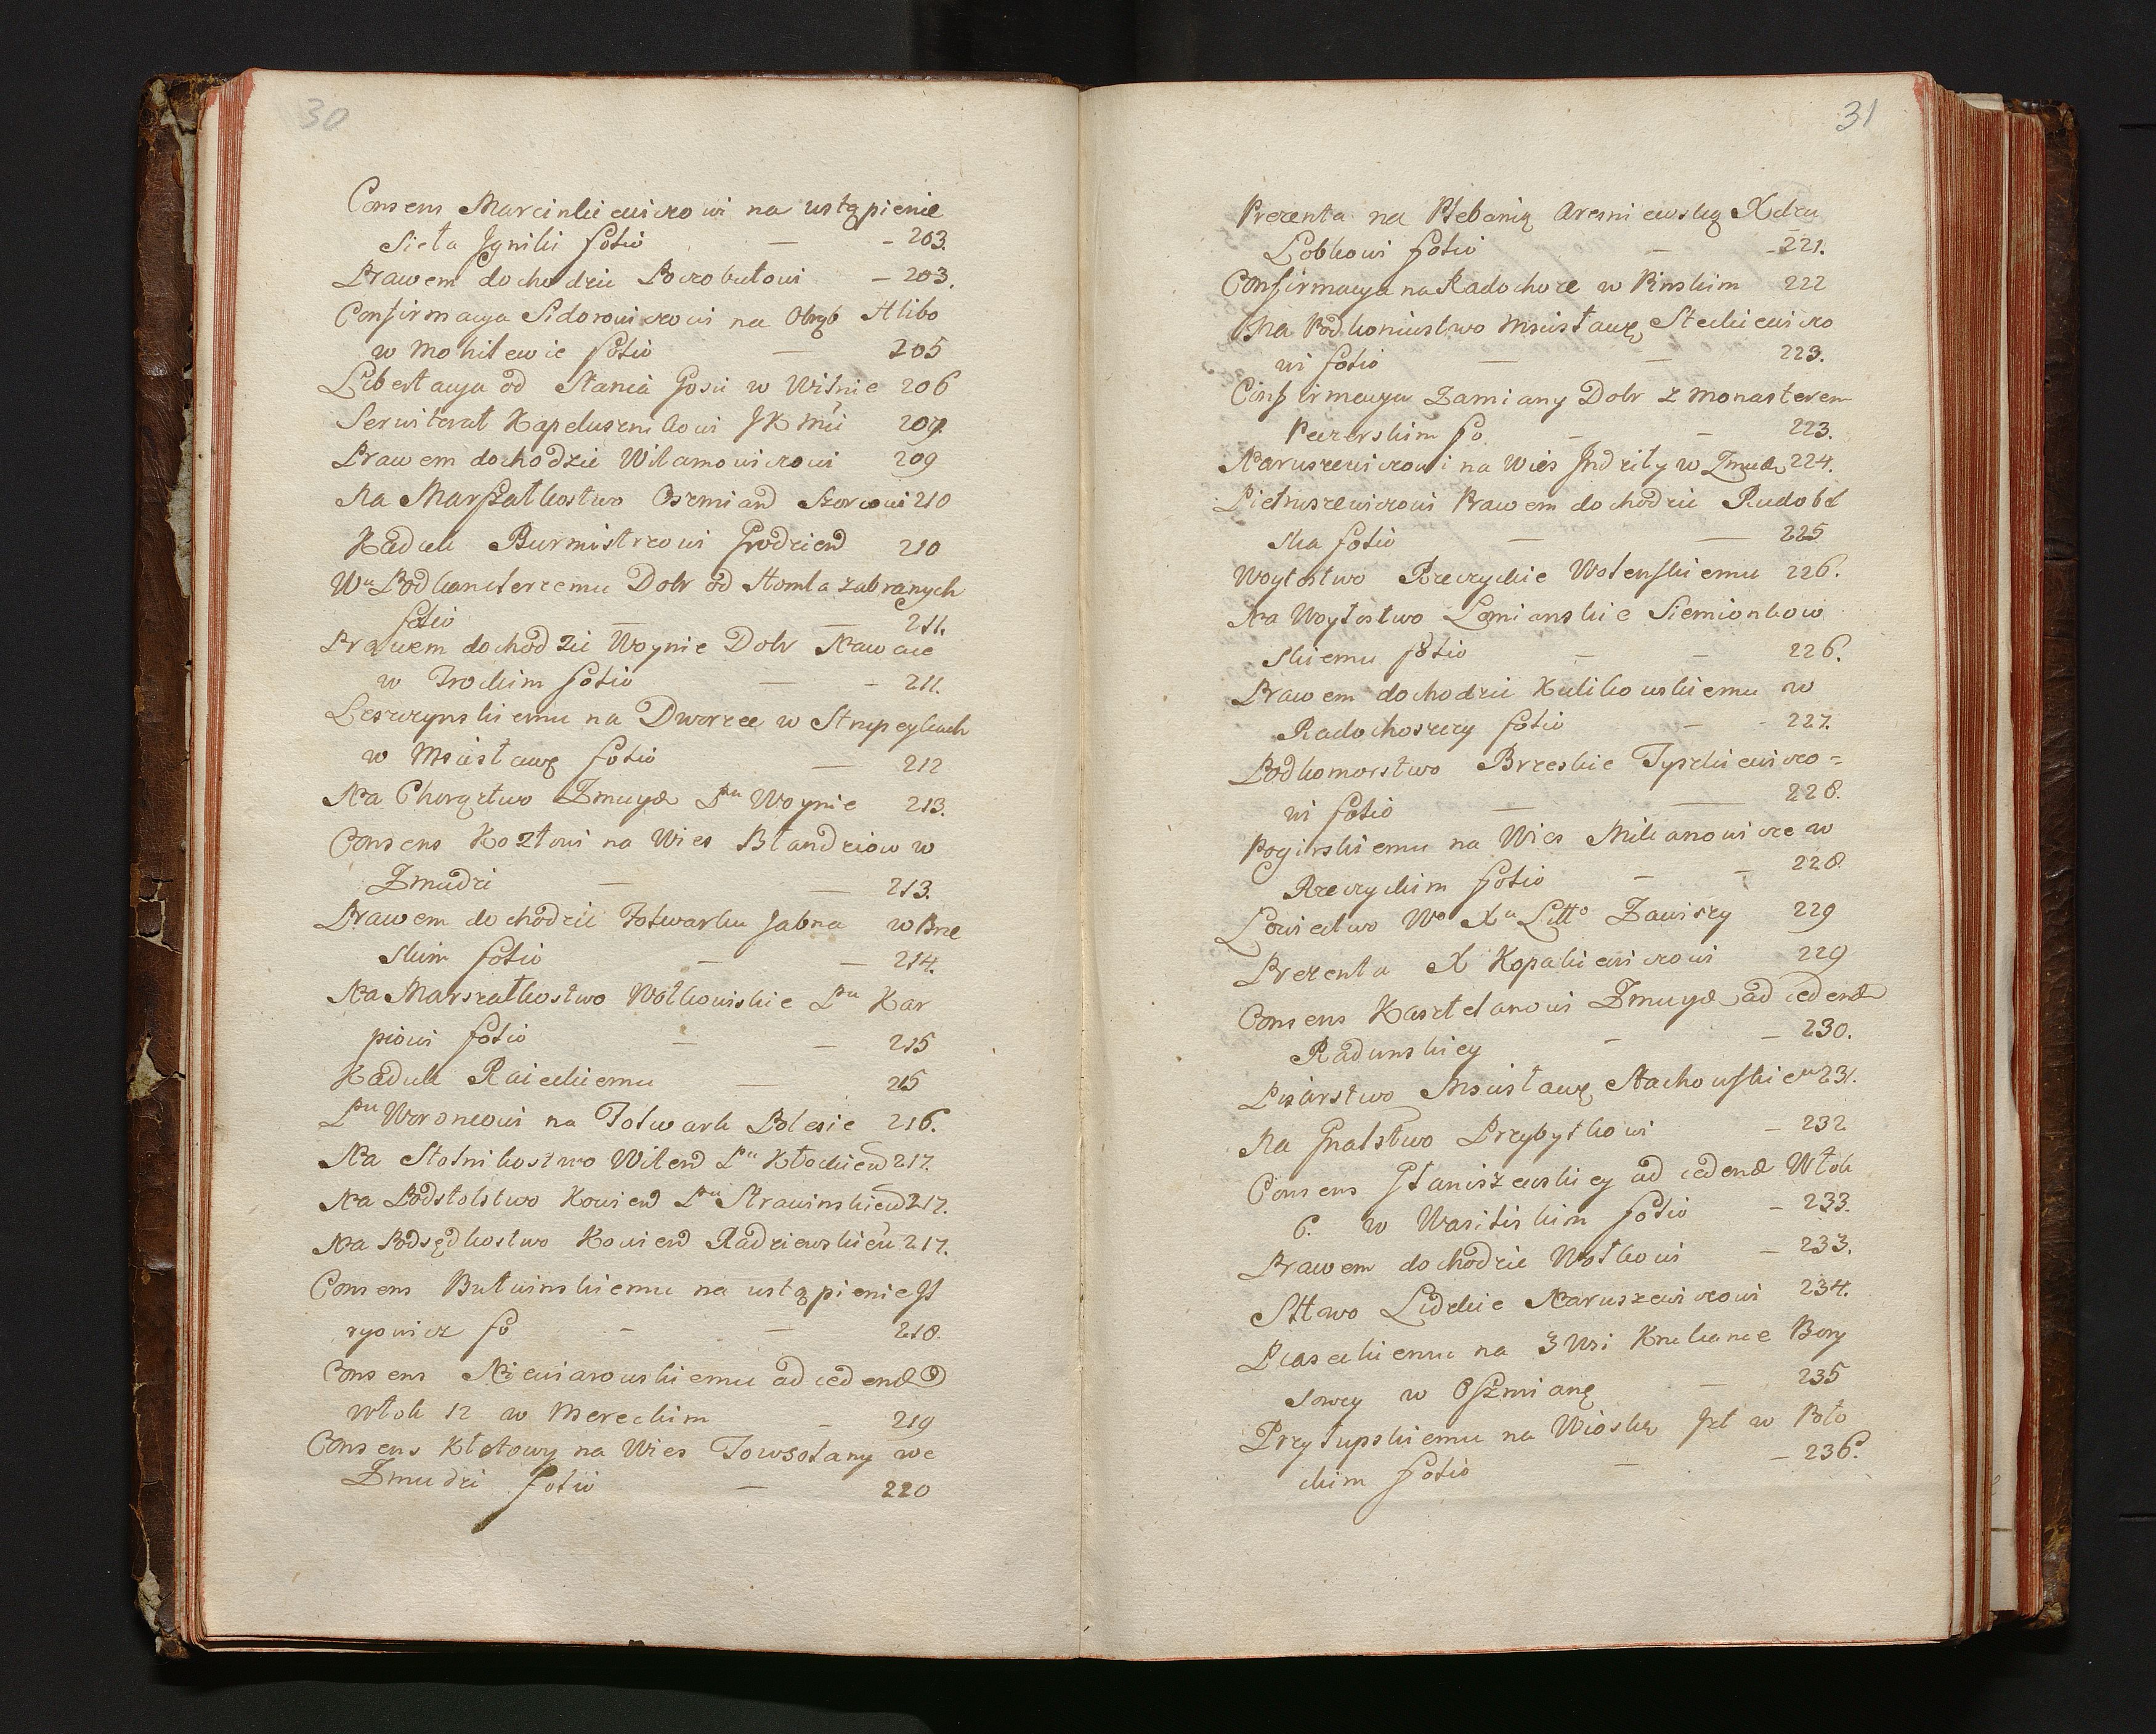 30
Consens Marcinkiewiczowi na ustąpienie
Sioła Jgnilii folio — - 203.
Prawem dochodzić Poczobutowi — 203.
Confirmacya Sidorowiczowi na Obręb Hlibo
w Mohilewie folio — 205
Libertacya od Stania Gosci w Wilnie 206
Serwitorat Kapelusznikowi JKMci 207.
Prawem dochodzic Wilamowiczowi 209
Na Marszałkostwo Oszmian Szorcowi 210
Kaduk Burmistrzowi Grodzien 210
Wu Podkanclerzemu Dobr od Homla zabranych
folio — — 211.
Prawem dochodzic Woynie Dobr Nawoie
w Trockim folio — - 211.
Leszczynskiemu na Dworzec w Strupeykach
w Mscisławę folio — 212
Na Chorąztwo Zmuyd Pnu Woynie 213.
Consens Kozłowi na Wies Błandziow w
Zmudzi — — 213.
Prawem dochodzić Folwarku Jabna w Brze
skim folio — — 214.
Na Marszałkostwo Wołkowiskie Pu Kar
piowi folio — — 215
Kaduk Raieckiemu — 215
Pnu Woroncowi na Folwark Polesie 216.
Na Stolnikostwo Wilen Pu Kłockiem 217.
Na Podstolstwo Kowien Pnu Strawinskiem 217.
Na Podsędkostwo Kowien Radziewskiemu 217.
Consens Butwinskiemu na ustąpienie Jt
ryowicz fo — — 218.
Consens Niewiarowskiemu ad cedend
włok 12 w Mereckim - 219
Consens Kłotowy na Wies Towsołany we
Zmudzi folio — 220
31
Prezenta na Plebanią Aresniewską Xdzu
Lobkowi folio — - 221.
Confirmacya na Radohoszcze w Pinskim 222
Na Podkoniustwo Mscisławę Steckiewiczo
wi folio — — 223.
Confirmacya Zamiany Dobr z Monasterem
Peczerskim fo — — 223.
Naruszewiczowi na Wies Jndrily w Zmud 224.
Pietruszewiczowi Prawem dochodzic Rudobel
ska folio — — 225
Woytostwo Rzeczyckie Wolenskiemu 226.
Na Woytostwo Lomianskie Siemionkow
skiemu folio — — 226.
Prawem dochodzić Kulikowskiemu w
Radohoszczy folio — - 227.
Podkomorstwo Brzeskie Tyszkiewiczo=
wi folio — — 228.
Pogirskiemu na Wies Milianowicze w
Rzeczyckim folio — - 228.
Lowiectwo Wo Xa Litto Zawiszy 229
Prezenta X Kopakiewiczowi 229
Consens Kasztelanowi Zmuyd ad cedend
Radunskiey — — 230.
Pisarstwo Mscisławę Stachowskiemu 231.
Na Gnalstwo Przybytkowi — 232
Consens Staniszewskiey ad cedend Włok
6. w Wasiliskim folio — 233.
Prawem dochodzić Wołkowi — 233.
Sttwo Lidzkie Naruszewiczowi 234.
Piaseckiemu na 3 Wsi Krukance Bory
sowcy w Oszmianę — 235
Przyłupskiemu na Wioskę Jzt w Poło
ckim folio — — 236.